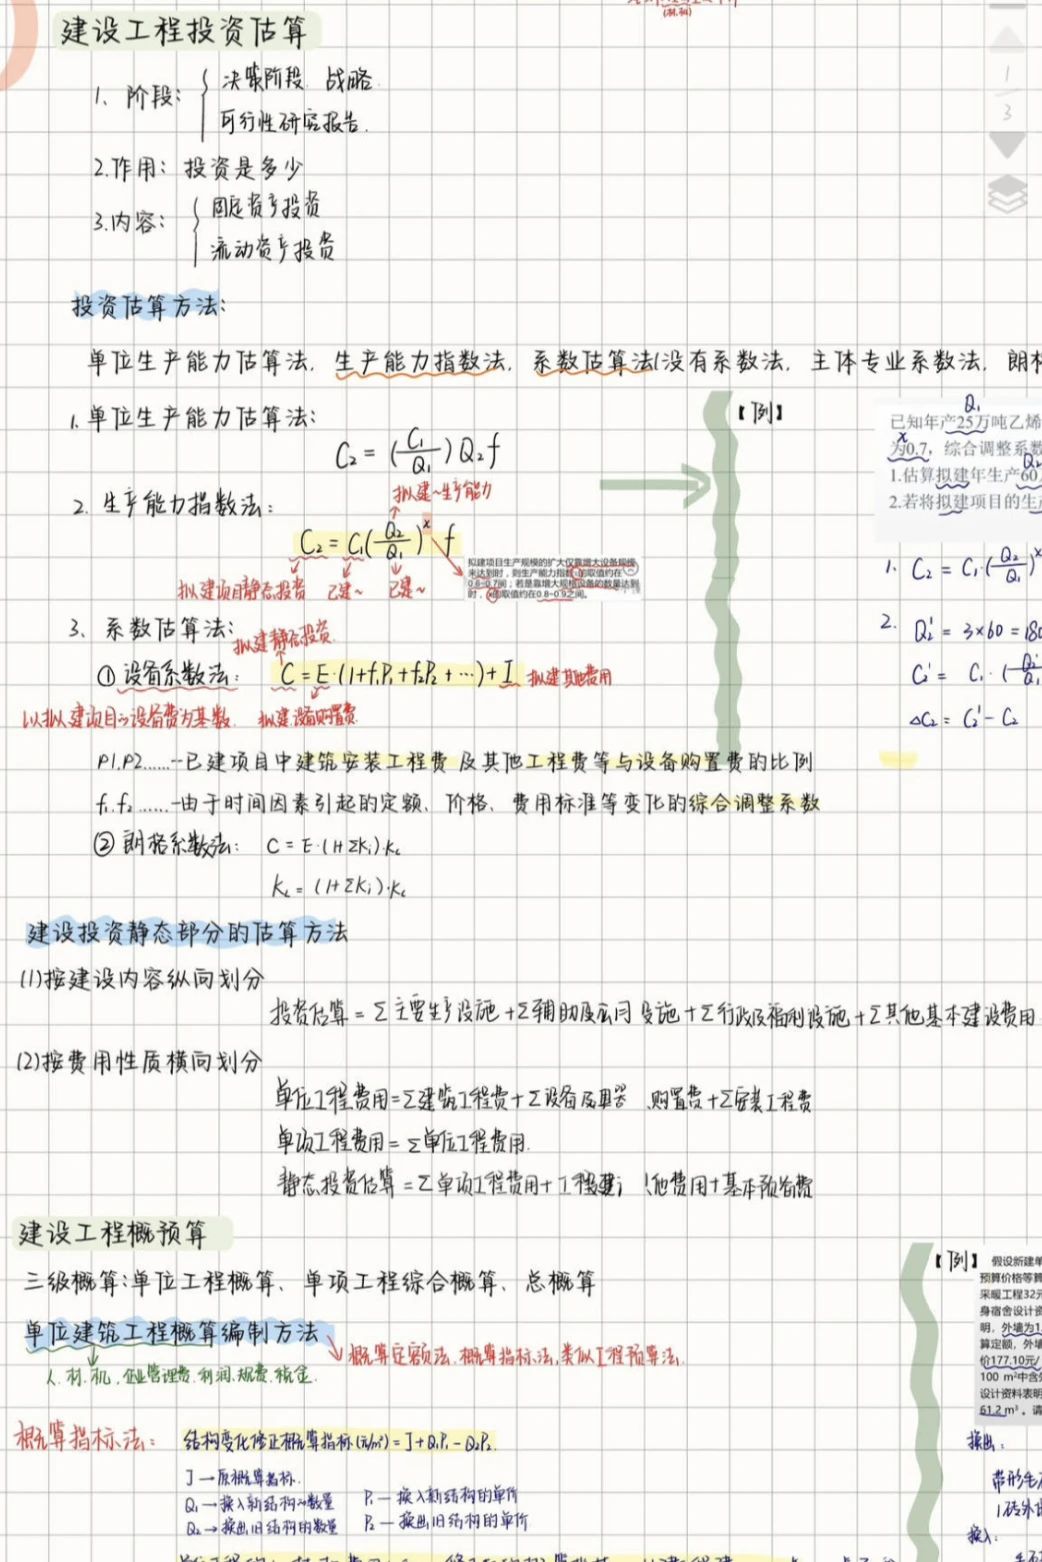 建设工程投资估算
1. 阶段：决策阶段. 战略.
可行性研究报告.
2.作用：投资是多少
3.内容：固定资产投资
流动资产投资
投资估算方法：
单位生产能力估算法, 生产能力指数法, 系数估算法(没有系数法, 主体专业系数法, 朗
1.单位生产能力估算法：
C₂ = (C₁/Q₁) Q₂ f
2. 生产能力指数法：
拟建~生产能力
C₂ = C₁(Q₂/Q₁)ˣ f
拟建项目静态投资 已建~ 已建~
拟建项目生产规模的扩大仅靠增大设备规模
来达到时，则生产能力指数 的取值约在
0.6~0.7间；若是靠增大规格设备的数量达到
时， 的取值约在0.8~0.9之间。
3. 系数估算法：
拟建静态投资.
① 设备系数法： C = E·(1+f₁P₁+f₂P₂+…)+I 拟建其他费用
以拟建项目的设备费为基数. 拟建设备购置费.
P1.P2......--已建项目中建筑安装工程费及其他工程费等与设备购置费的比例
f₁.f₂......-由于时间因素引起的定额、价格、费用标准等变化的综合调整系数
② 朗格系数法： C = E·(1+Σki)·kc
kL = (1+Σki)·kc
建设投资静态部分的估算方法
(1)按建设内容纵向划分
投资估算 = Σ主要生产设施 + Σ辅助及公用设施 + Σ行政及福利设施 + Σ其他基本建设费用
(2)按费用性质横向划分
单位工程费用=Σ建筑工程费+Σ设备及工器 购置费+Σ安装工程费
单项工程费用 = Σ单位工程费用.
静态投资估算 = Σ单项工程费用+工程建 他费用+基本预备费
建设工程概预算
三级概算：单位工程概算、单项工程综合概算、总概算
单位建筑工程概算编制方法
概算定额法. 概算指标法, 类似工程预算法.
人. 材. 机. 企业管理费. 利润. 规费. 税金.
概算指标法： 结构变化修正概算指标(元/m²) = J+Q₁P₁-Q₂P₂.
J → 原概算指标.
Q₁ → 换入新结构的数量 P₁ — 换入新结构的单价
Q₂ → 换出旧结构的数量 P₂ — 换出旧结构的单价
【例】
Q₁
已知年产25万吨乙烯
x
为0.7，综合调整系数
Q₂
1.估算拟建年生产60
2.若将拟建项目的生产
1. C₂ = C₁·(Q₂/Q₁)ˣ
2. Q₂' = 3×60 = 180
C₂' = C₁·(Q₂'/Q₁
ΔC₂ = C₂' - C₂
【例】 假设新建单
预算价格等算
采暖工程32元
身宿舍设计资
明，外墙为1.
算定额，外墙
价177.10元/
100 m²中含外
设计资料表明
61.2 m³。请
换出：
带形毛
1砖外
换入：
1
3